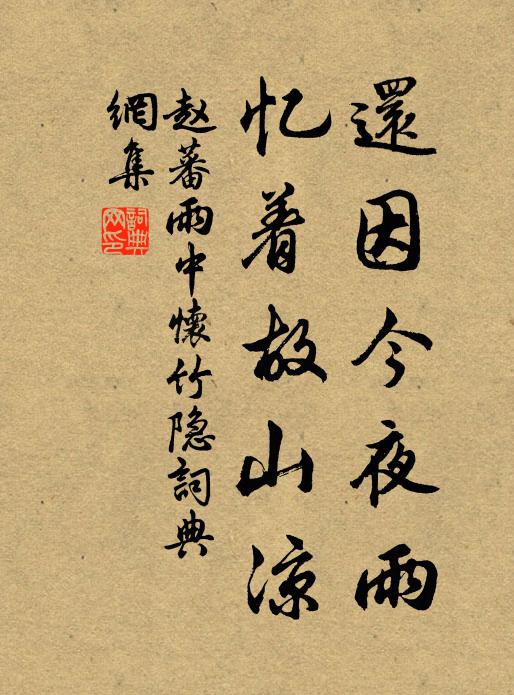 還因今夜雨
忆着故山凉
赵蕃雨中懷竹隐詞典
網集
詞典
网印